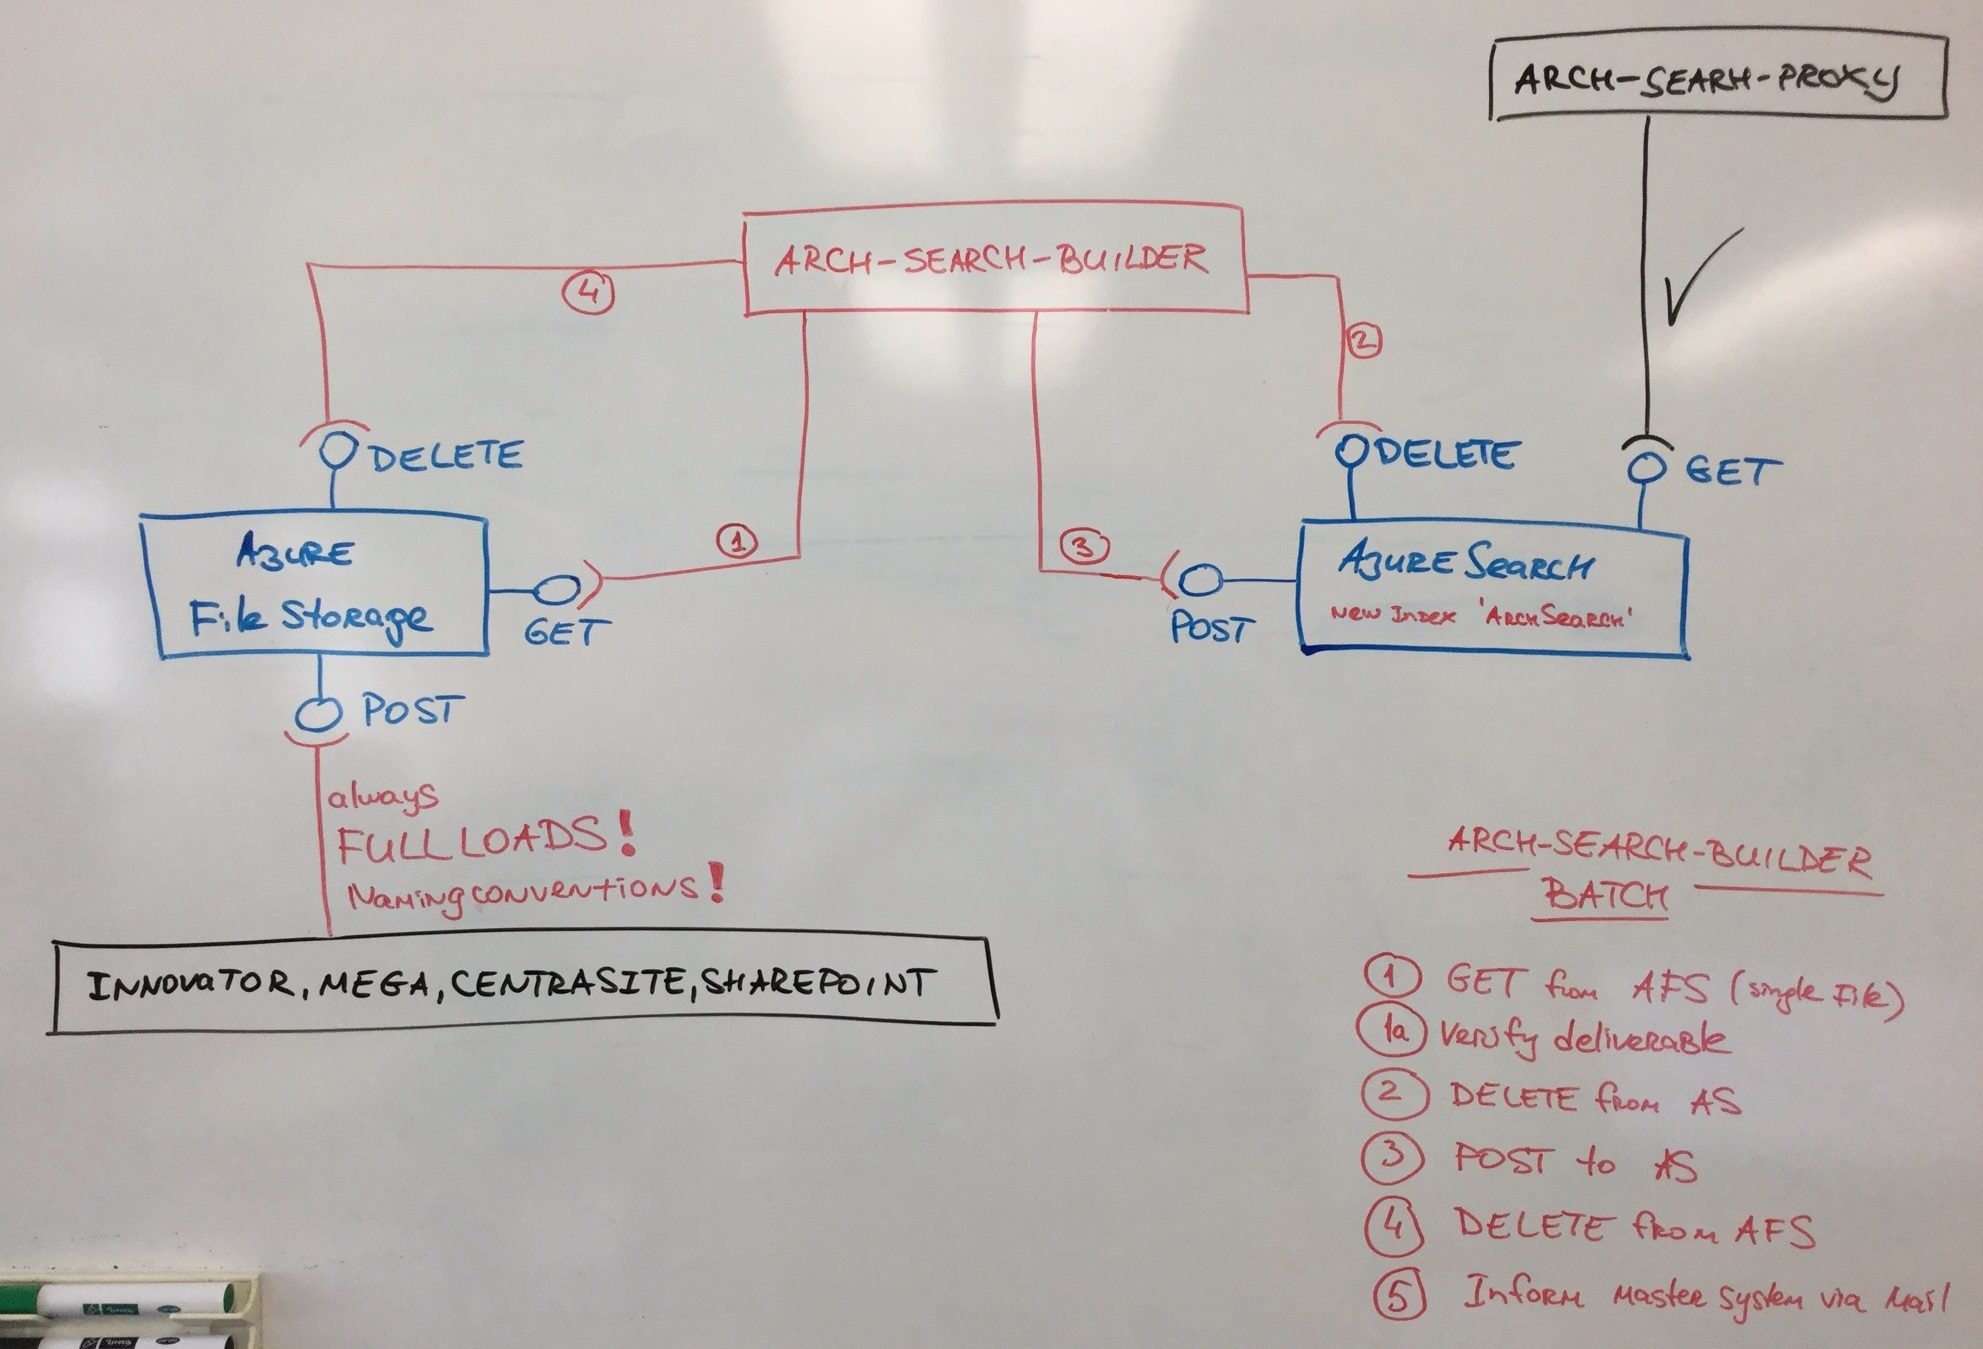 ARCH-SEARH-PROXY
ARCH-SEARCH-BUILDER
4
2
DELETE
DELETE
GET
1
3
AZURE
File Storage
GET
POST
AZURE SEARCH
New Index 'ArchSearch'
POST
always
FULL LOADS!
Naming conventions!
INNOVATOR, MEGA, CENTRASITE, SHAREPOINT
ARCH-SEARCH-BUILDER
BATCH
1 GET from AFS (single File)
1a Verify deliverable
2 DELETE from AS
3 POST to AS
4 DELETE from AFS
5 Inform Master system via Mail